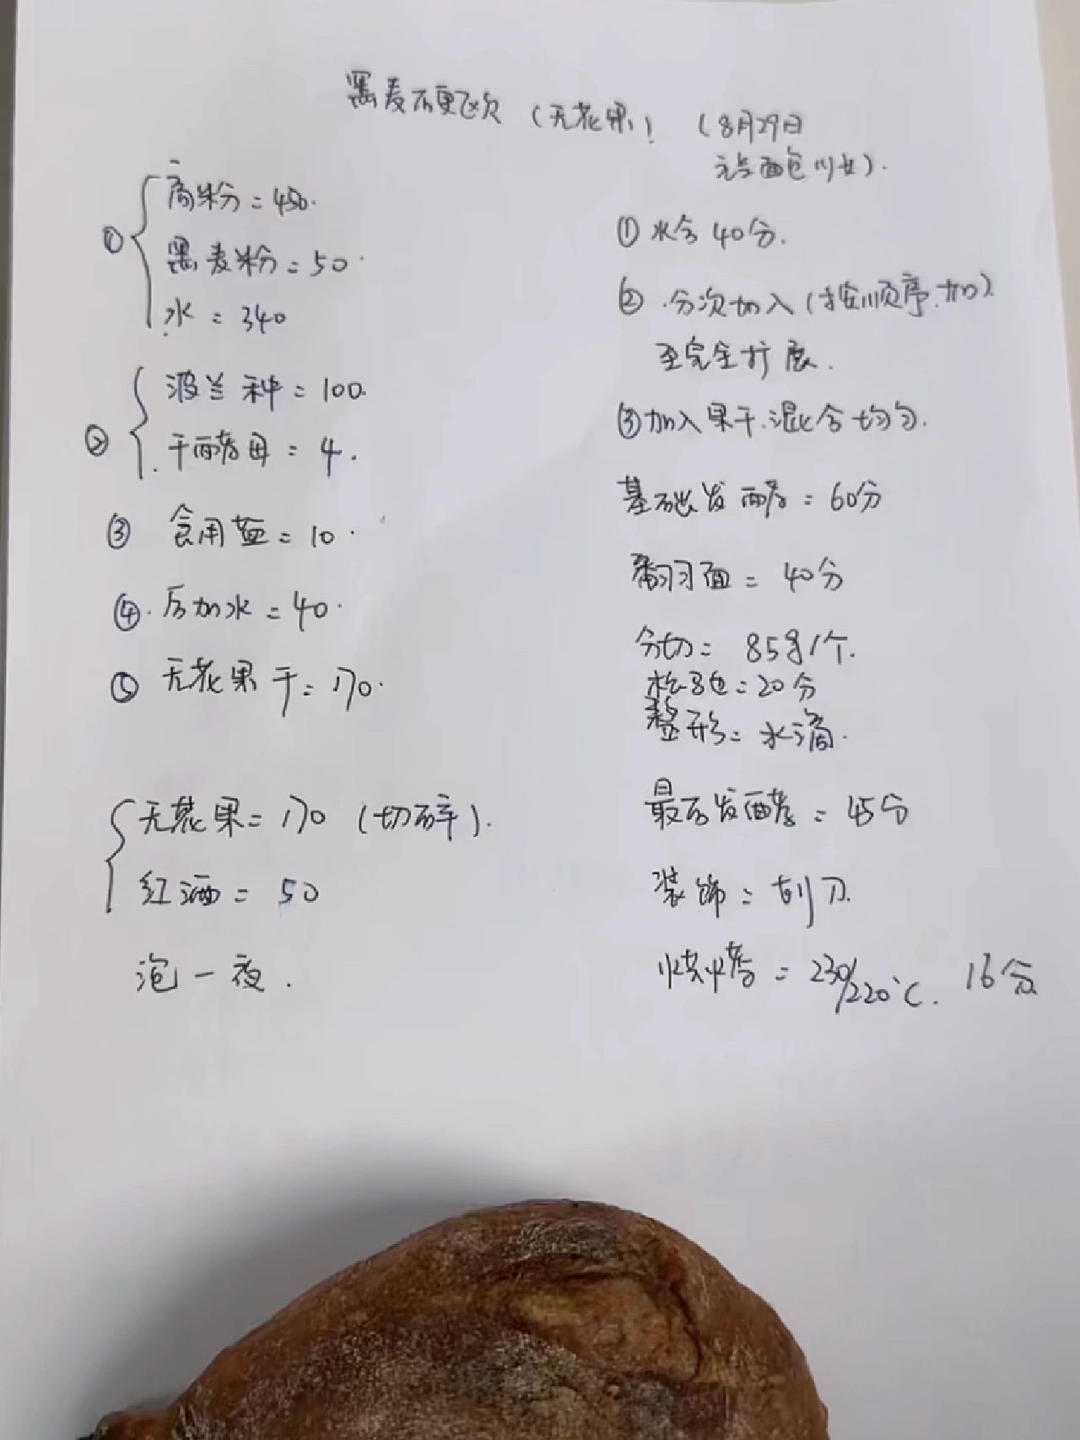 黑麦石更欧 (无花果) (8月29日
元与面包川女).
① 高粉=450.
黑麦粉=50.
水=340
② 波兰种=100.
干酵母=4.
③ 食用盐=10.
④.后加水=40.
⑤ 无花果干=170.
无花果=170 (切碎).
红酒=50
泡一夜.
① 水合40分.
② 分次加入(按顺序加)
至完全扩展.
③加入果干.混合均匀.
基础发酵=60分
翻面=40分
分切=85g/个.
松弛=20分
整形=水滴.
最后发酵=45分
装饰=割刀.
烘烤=230/220℃. 16分